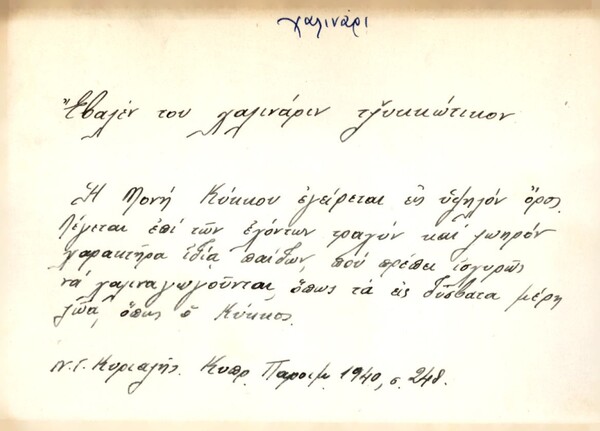 χαλινάρι
Ἔβαλέν του χαλινάριν τζ̌υκκώτικον.
Ἡ Μονή Κύκκου ἐγείρεται εἰς ὑψηλόν ὄρος.
Λέγεται ἐπί τῶν ἐχόντων τραχύν καί ζωηρόν
χαρακτῆρα ἰδίᾳ παίδων, πού πρέπει ἰσχυρῶς
νά χαλιναγωγοῦνται, ὅπως τά εἰς δύσβατα μέρη
ζῶα, ὅπως ὁ Κύκκος.
Ν. Γ. Κυριαζῆς. Κυπρ. Παροιμ. 1940, σ. 248.